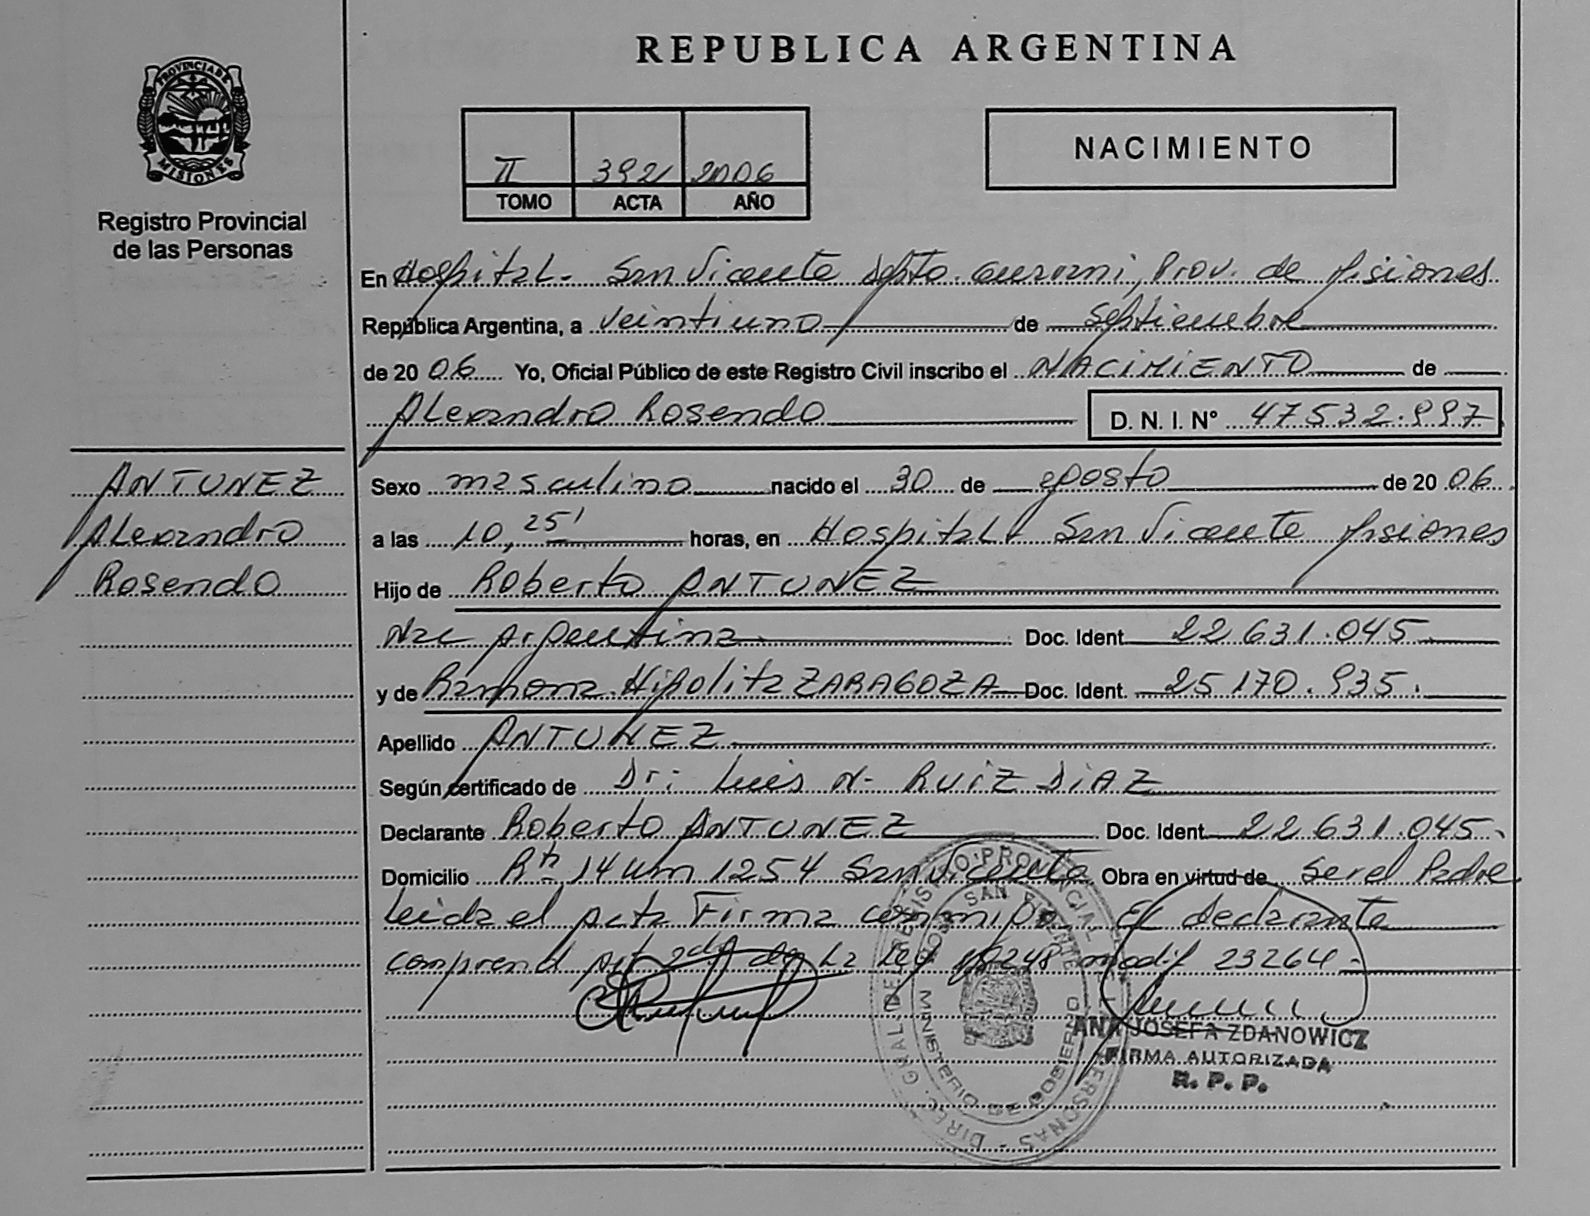 REPUBLICA ARGENTINA
PROVINCIA DE
MISIONES
Registro Provincial
de las Personas
NACIMIENTO
II 392 2006
TOMO ACTA AÑO
En Hospital - San Vicente Dpto. Guarani, Prov. de Misiones
República Argentina, a veintiuno de Septiembre
de 2006 Yo, Oficial Público de este Registro Civil inscribo el NACIMIENTO de
Alexandro Rosendo D. N. I. Nº 47532.997
ANTUNEZ
Alexandro
Rosendo
Sexo masculino nacido el 30 de agosto de 2006
a las 10,25' horas, en Hospital San Vicente Misiones
Hijo de Roberto ANTUNEZ
Nac Argentina Doc. Ident 22.631.045
y de Ramona Hipolita ZARAGOZA Doc. Ident. 25170.935.
Apellido ANTUNEZ
Según certificado de Dr: Luis N- RUIZ DIAZ
Declarante Roberto ANTUNEZ Doc. Ident 22631.045
Domicilio Rn 14 Km 1254 San Vicente Obra en virtud de ser el Padre
Leida el acta Firma conmigo El declarante
comprend art 2do de la Ley 18248 modif 23264-
ANA JOSEFA ZDANOWICZ
FIRMA AUTORIZADA
R. P. P.
DIREC. GRAL DE REGISTRO PROVINCIAL PERSONAS
SAN VICENTE
MINISTERIO DE GOBIERNO